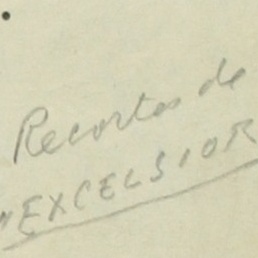 Recortes de
"EXCELSIOR